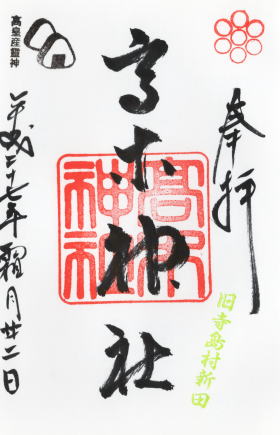 奉拝
旧寺島村新田
高木神社
髙木神社
高皇産霊神
平成二十七年霜月廿二日